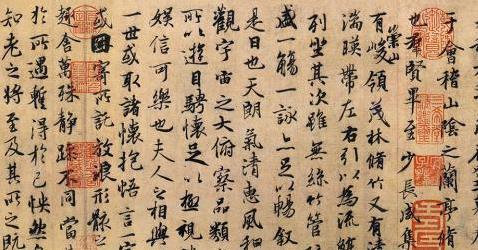 于會稽山陰之蘭亭脩
也羣賢畢至少長咸集
有崇山峻領茂林脩竹又有清
湍暎帶左右引以為流觴
列坐其次雖無絲竹管
盛一觴一詠亦足以暢叙
是日也天朗氣清惠風和
觀宇宙之大俯察品類
所以遊目騁懷足以極視
娛信可樂也夫人之相與
一世或取諸懷抱悟言一
或因寄所託放浪形骸之
趣舍萬殊靜躁不同當
於所遇蹔得於己快然
知老之將至及其所之既